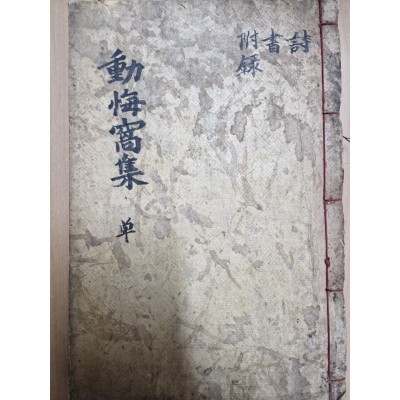 詩
書
附録
動悔窩集
単